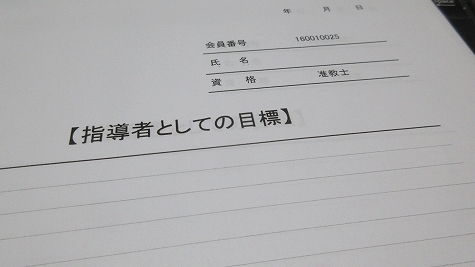 年 月 日
会員番号 160010025
氏 名
資 格 准教士
【指導者としての目標】